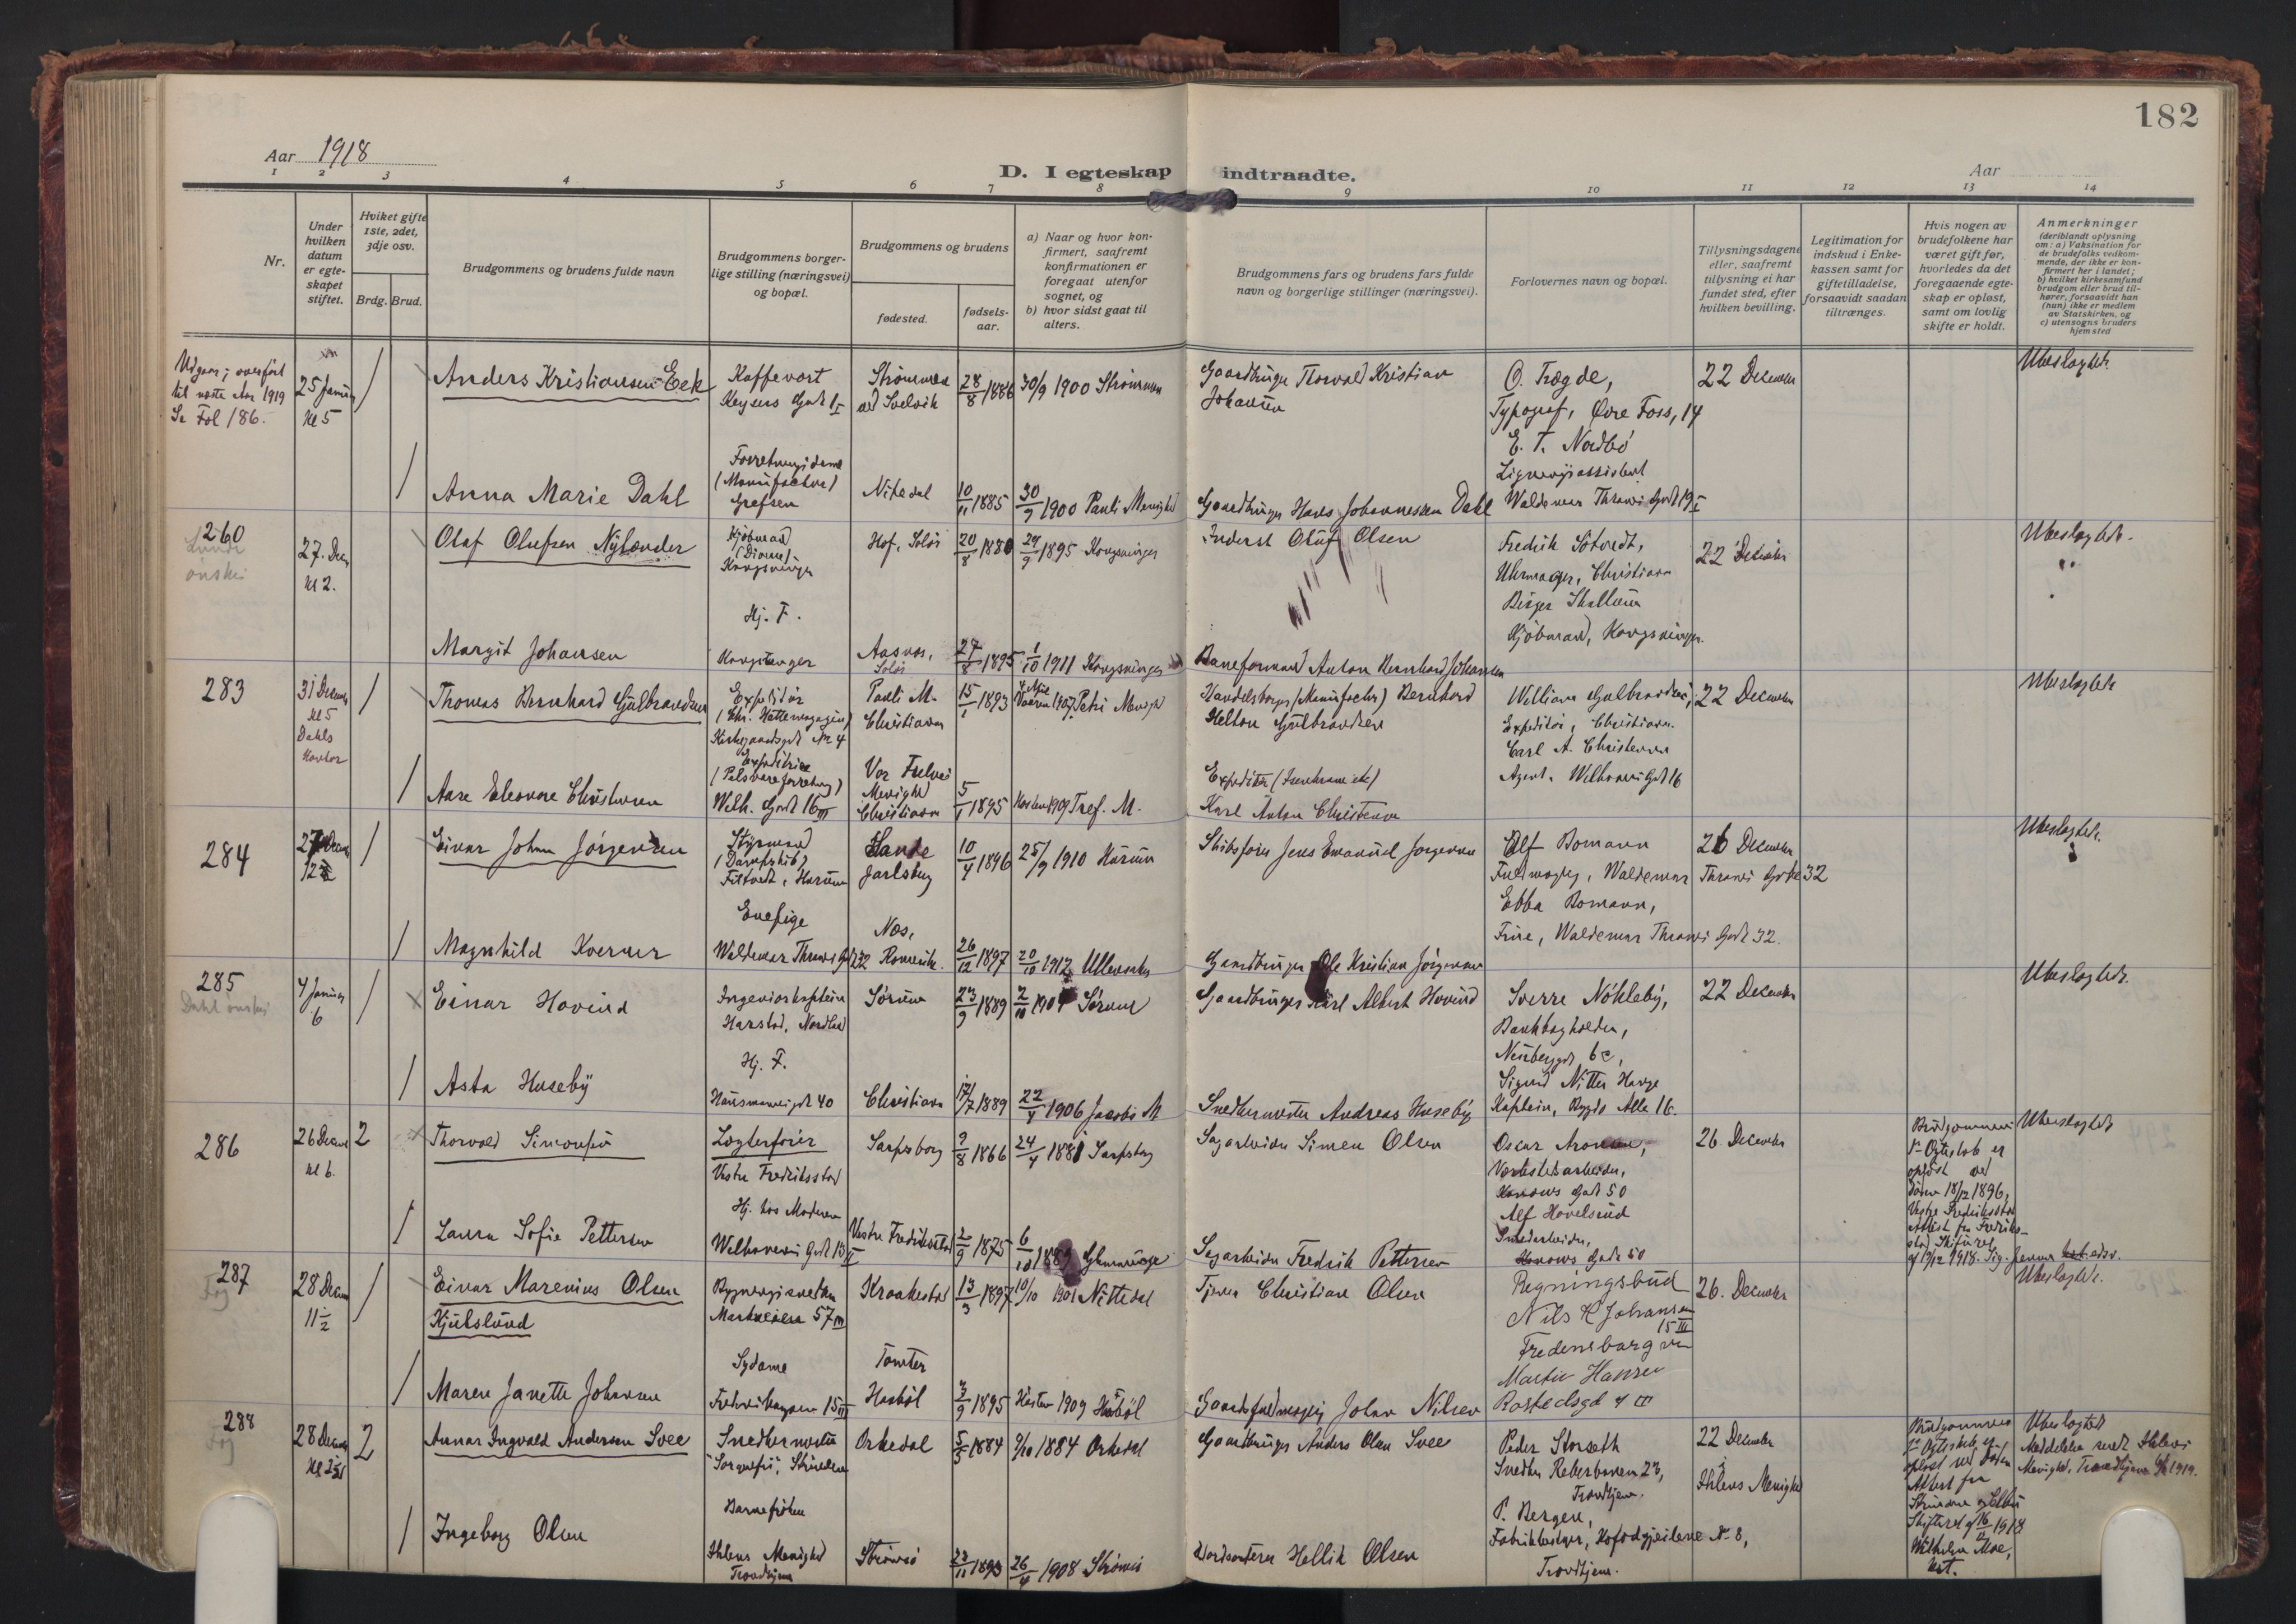 182
Aar 1918
D. I egteskap indtraadte.
Aar
1 2 3 4 5 6 7 8 9 10 11 12 13 14
Nr.
Under hvilken datum er egteskapet stiftet.
Hvilket gifte 1ste, 2det, 3dje osv.
Brdg. Brud.
Brudgommens og brudens fulde navn
Brudgommens borgerlige stilling (næringsvei) og bopæl.
Brudgommens og brudens
fødested.
fødselsaar.
a) Naar og hvor konfirmert, saafremt konfirmationen er foregaat utenfor sognet, og
b) hvor sidst gaat til alters.
Brudgommens fars og brudens fars fulde navn og borgerlige stillinger (næringsvei).
Forlovernes navn og bopæl.
Tillysningsdagene eller, saafremt tillysning ei har fundet sted, efter hvilken bevilling.
Legitimation for indskud i Enkekassen samt for giftetilladelse, forsaavidt saadan tiltrænges.
Hvis nogen av brudefolkene har været gift før, hvorledes da det foregaaende egteskap er opløst, samt om lovlig skifte er holdt.
Anmerkninger
(deriblandt oplysning om: a) Vaksination for de brudefolks vedkommende, der ikke er konfirmert her i landet; b) hvilket kirkesamfund brudgom eller brud tilhører, forsaavidt han (hun) ikke er medlem av Statskirken, og c) utensogns bruders hjemsted
Udgaar; overført
til næste Aar 1919
Se Fol 186.
25 Januar
Kl 5
Anders Kristiansen Eek
Kaffevert
Keysers Gade 1 I
Strømmen
ved Svelvik
28/8 1886
30/9 1900 Strømmen
Gaardbruger Thorvald Kristian
Johansen
O. Trægde,
Typograf, Øvre Foss, 14
E. T. Nordbö
Ligningsassistent
Waldemar Thranes Gade 19 I
22 December
Ubeslægtede.
Anna Marie Dahl
Forretningsdame
(Manufaktur)
Grefsen
Nitedal
10/11 1885
30/9 1900 Pauli Menighed
Gaardbruger Hans Johannessen Dahl
260
27. Dec
kl 2.
Olaf Olufsen Nylænder
Kjöbmand
Kongsvinger
Hof, Solör
20/8 1880
29/9 1895 Kongsvinger
Inderst Oluf Olsen
Fredrik Sötvedt,
Uhrmager, Christiania
Birger
Kjöbmand, Kongsvinger.
22 December
Ubeslægtede.
Margit Johansen
Hj. F.
Kongsvinger
Aasnes,
Solör
27/8 1895
1/10 1911 Kongsvinger
Baneformand Anton Bernhard Johansen
283
31 December
kl 5
Dahls
Kontor
Thomas Bernhard Gulbrandsen
Expeditör
(Chr. Hattemagasin)
Kirkegaardsgd. No 4
Pauli M.
Christiania
15/1 1893
Vaaren 1907 Petri Menighed
Handelsborger (Manufactur) Bernhard
Helton Gulbrandsen
William Gulbrandsen,
Expeditör, Christiania.
Carl A. Christensen
Agent. Welhavens Gade 16
22 December
Ubeslægtede
Aase Eleonore Christensen
Expeditrice
(Pelsvareforretning)
Welh. Gade 16 III
Vor Frelsers
Menighed
Christiania
5/1 1895
Høsten 1909 Tref. M.
Karl Anton Christensen
284
27 Decem
Einar Johan Jörgensen
Styrmand
(Dampskib)
Filtvedt, Hurum
Sande
Jarlsberg
10/4 1896
25/9 1910 Hurum
Skibsfører Jens Emanuel Jørgensen
Alf Bomann
Fuldmægtig, Waldemar Thranes Gade 32
Ebba Bomann,
Frue, Waldemar Thranes Gade 32.
26 December
Ubeslægtede.
Magnhild Kverner
Waldemar Thranes Gd 32
Nes,
Romerike.
26/12 1897
20/10 1912 Ullensaker
Gaardbruger Ole Kristian Jörgensen
285
Dahl ønskes
4 Januar
6
Einar Hovind
Ingeniørkaptein
Harstad, Nordland
Sørum
23/9 1889
2/10 1904 Sørum
Gaardbruger Karl Albert Hovind
Sverre Nökleby,
Bankbogholder,
Neuberggd. 6c,
Sigurd Nitter Hauge
Kaptein, Bygdø Alle 16.
22 December
Ubeslægtede.
Asta Huseby
Hj. F.
Hausmannsgd. 40
Christiania
17/7 1889
22/4 1906 Jacobs M
Snedkermester Andreas Huseby
286
26 Decem
kl 6.
2
Thorvald Simonsen
Lægterfører
Vestre Fredriksstad
Sarpsborg
9/8 1866
24/4 1881 Sarpsborg
Sagarbeider Simen Olsen
Oscar Aronsen,
Værkstedsarbeider,
Konows Gade 50
Alf Hovelsrud
Smedarbeider,
Konows Gade 50
26. December
Brudgommens
1ste Ægteskab er
opløst ved
Døden 18/12 1896,
Vestre Fredriksstad
Attest fra Fredriksstad
Skifteret
af 19/12 1918.
Ubeslægtede
Laura Sofie Pettersen
Hj. hos Moderen
Welhavens Gade 15 II
Vestre Fredriksstad
2/9 1875
6/10 1889 Glemminge
Sagarbeider Fredrik Pettersen
287
28 Decem
11 1/2
Einar Marenius Olsen
Kjulslund
Bygningssnedker
Markveien 57 III
Kraakstad
13/3 1897
10/10 1901 Nittedal
Tjener Christian Olsen
Regningsbud
Nils K Johansen
15 III
Fredensborgvn
Martin Hansen
Rostedsgd 4 III
26. December
Ubeslægtede.
Maren Janette Johansen
Sydame
Fredensborgveien 15 III
Tomter
Hobøl
3/9 1895
Høsten 1909 Hobøl
Gaardsfuldmægtig Johan Nilsen
288
28 Decem
2
Annar Ingvald Andersen Svee
Snedkermester
"Sorgenfri", Strinden
Orkedal
5/5 1884
9/10 1884 Orkedal
Gaardbruger Anders Olsen Svee
Peder Storseth
Snedker Reberbanen 23,
Trondhjem.
P. Bergen,
Fabrikbestyrer, No 8,
Trondhjem.
22 December
Ihlens Menighed
Brudgommens
1ste Ægteskab er
opløst ved Døden
Attest fra
Strinden og Selbu
Skifteret af 16/12 1918
Wilhelm Moe,
Ubeslægtede
Meddelelse sendt Ihlens
Menighed, Trondhjem 1919.
Ingeborg Olsen
Barnefrøken
Ihlens Menighed
Trondhjem
Strømsö
23/11 1893
26/4 1908 Strømsö
Hellik Olsen